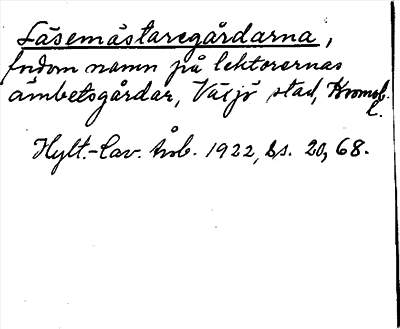 Läsemästaregårdarna,
fordom namn på lektorernas
ämbetsgårdar, Växjö stad, Kronob.
l.
Hylt.-Cav. hÃ¥b. 1922, ss. 20, 68.